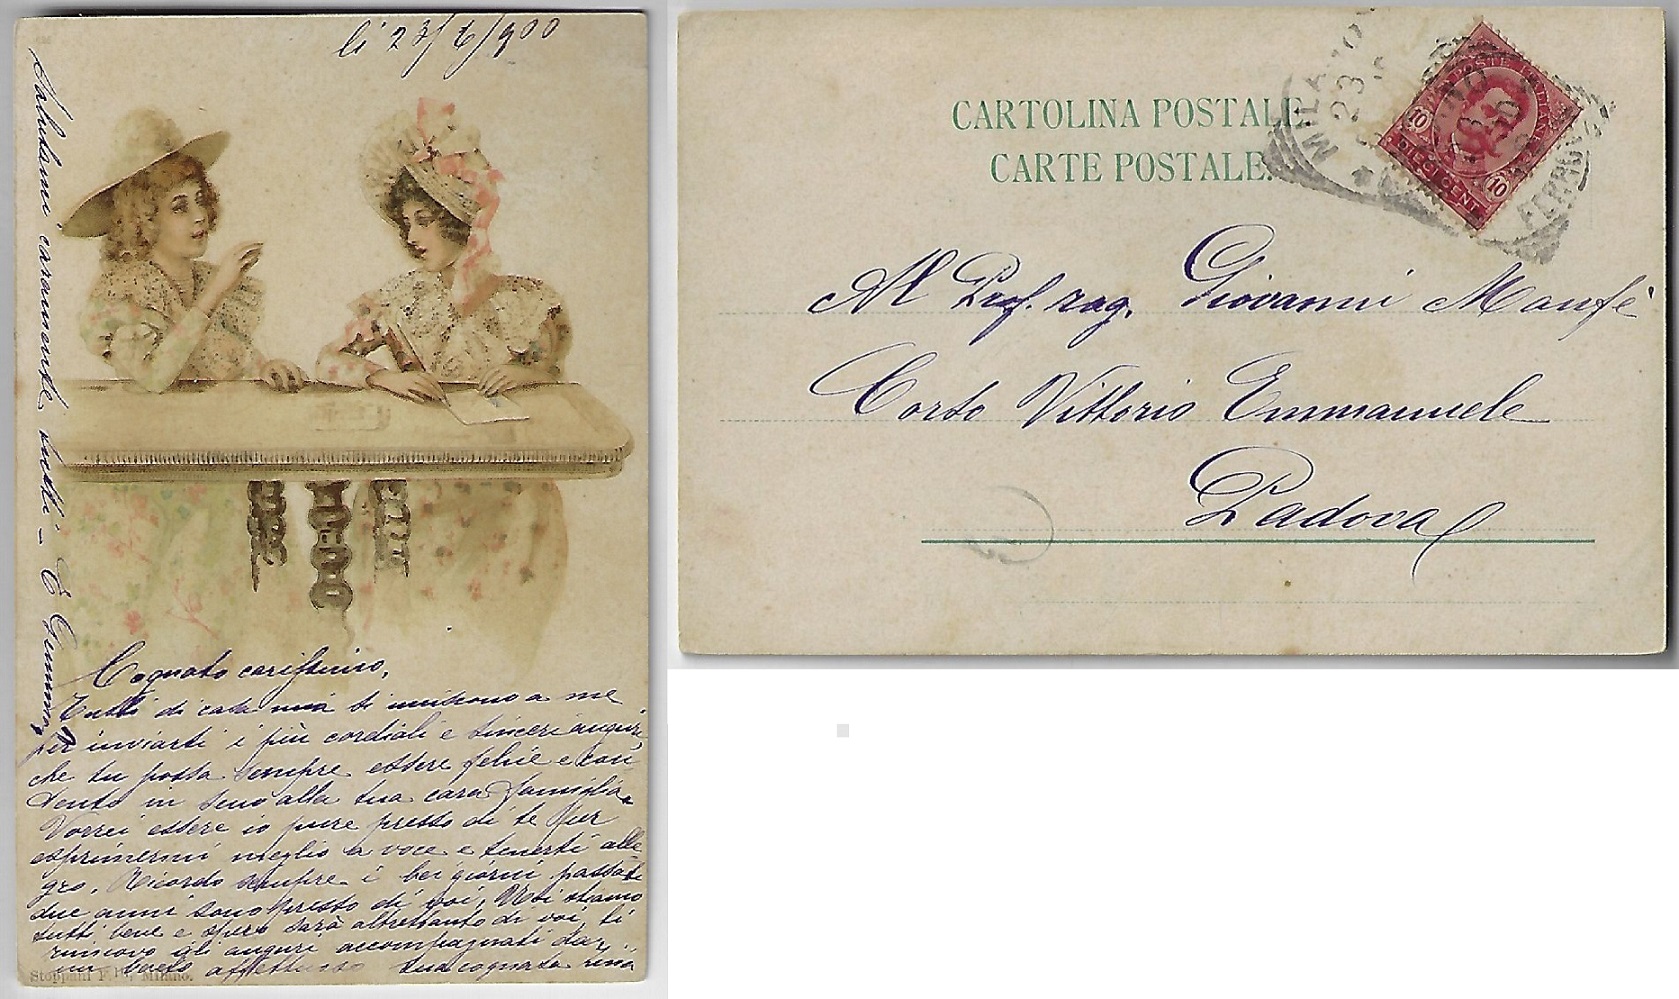 li 23/6/900
Salutami caramente tutti - E Gemma
Cognato carissimo,
Tutti di casa mia si uniscono a me
per inviarti i più cordiali e sinceri auguri,
che tu possa sempre essere felice e con
tento in seno alla tua cara famiglia.
Vorrei essere io pure presso di te per
esprimermi meglio a voce e tenerti alle
gro. Ricordo sempre i bei giorni passati
due anni sono presso di voi, Noi stiamo
tutti bene e spero sarà altrettanto di voi, ti
rinnovo gli auguri accompagnati da
un bacio affettuoso tua cognata
Stoppani F.lli, Milano.
CARTOLINA POSTALE
CARTE POSTALE.
MILANO
23
FERROVIA
POSTE ITALIANE
10
10
DIECI CENT
Al Prof. rag. Giovanni Manfè
Corso Vittorio Emmanuele
Padova